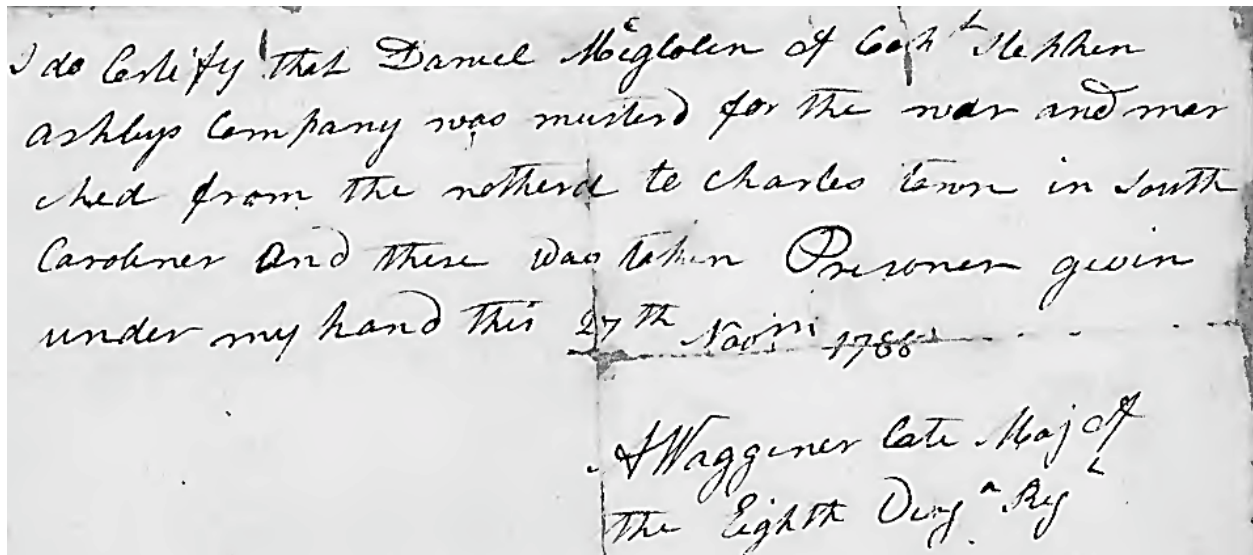 I do Certify that Daniel McGlolen of Capt Stephen
ashbys Company was musterd for the war and mar
ched from the notherd to Charles town in South
Caroliner And there was taken Prisoner givin
under my hand this 27th Novm 1788
A Waggener late Maj of
the Eighth Virga Regt